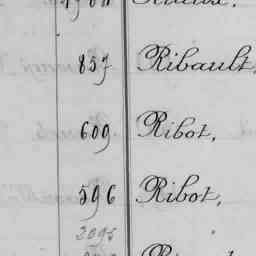 857 Ribault,
609 Ribot,
596 Ribot,
2095